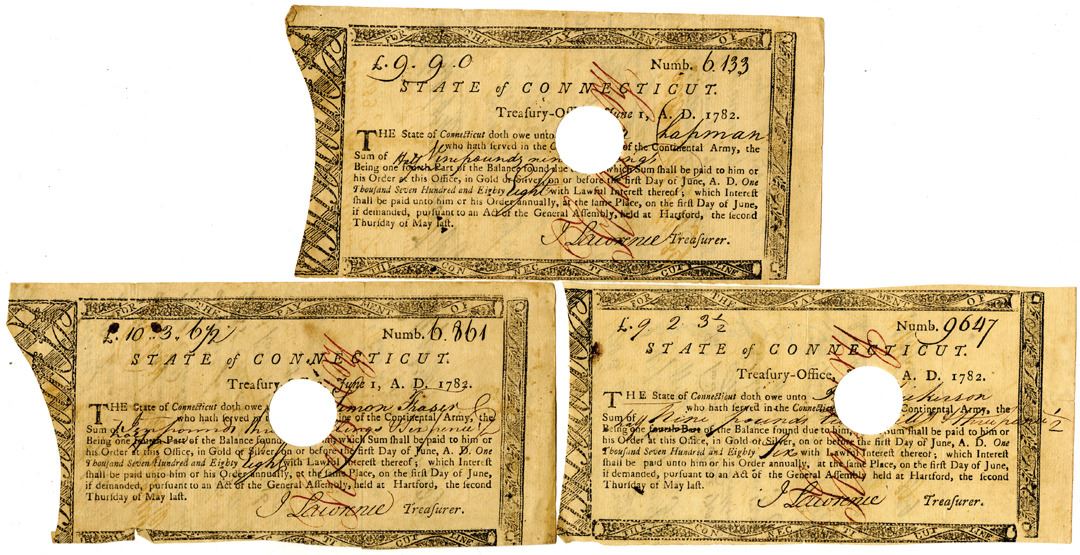 FOR THE PAY MENT OF
£. 9. 9. 0 Numb. 6.133
STATE of CONNECTICUT.
Treasury-Of June 1, A. D. 1782.
THE State of Connecticut doth owe unto Chapman
who hath served in the C of the Continental Army, the
Sum of Nine pounds nine
Being one fourth Part of the Balance found due which Sum shall be paid to him or
his Order at this Office, in Gold or Silver, on or before the first Day of June, A. D. One
Thousand Seven Hundred and Eighty Eight with Lawful Interest thereof; which Interest
shall be paid unto him or his Order annually, at the same Place, on the first Day of June,
if demanded, pursuant to an Act of the General Assembly, held at Hartford, the second
Thursday of May last.
J Lawrence Treasurer.
THE CON NEC TI CUT LINE
FOR THE PAY MENT OF
£. 10. 3. 6 1/2 Numb. 6.861
STATE of CONNECTICUT.
Treasury- June 1, A. D. 1782.
THE State of Connecticut doth owe Simon Fraser
who hath served in the ine of the Continental Army, the
Sum of Ten pounds
Being one fourth Part of the Balance found which Sum shall be paid to him or
his Order at this Office, in Gold or Silver, on or before the first Day of June, A. D. One
Thousand Seven Hundred and Eighty Eight with Lawful Interest thereof; which Interest
shall be paid unto him or his Order annually, at the same Place, on the first Day of June,
if demanded, pursuant to an Act of the General Assembly, held at Hartford, the second
Thursday of May last.
J Lawrence Treasurer.
THE CON NEC TI CUT LINE
FOR THE PAY MENT OF
£. 9 2 3 1/2 Numb. 9647
STATE of CONNECTICUT.
Treasury-Office, A. D. 1782.
THE State of Connecticut doth owe unto
who hath served in the Connecticut Continental Army, the
Sum of Nine pounds
Being one fourth Part of the Balance found due to him, Sum shall be paid to him or
his Order at this Office, in Gold or Silver, on or before the first Day of June, A. D. One
Thousand Seven Hundred and Eighty Six with Lawful Interest thereof; which Interest
shall be paid unto him or his Order annually, at the same Place, on the first Day of June,
if demanded, pursuant to an Act of the General Assembly, held at Hartford, the second
Thursday of May last.
J Lawrence Treasurer.
THE CON NEC TI CUT LINE